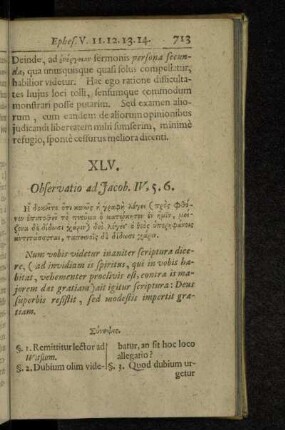 Ephes. V. 11. 12. 13. 14. 713
Deinde, ad ἐνέργειαν sermonis persona secun-
da, qua unusquisque quasi solus compellatur,
habilior videtur. Hac ego ratione difficulta-
tes hujus loci tolli, sensumque commodum
monstrari posse putarim. Sed examen alio-
rum, cum eandem de aliorum opinionibus
judicandi libertatem mihi sumserim, minimè
refugio, spontè cessurus meliora dicenti.
XLV.
Observatio ad Jacob. IV. 5. 6.
Ἢ δοκεῖτε ὅτι κενῶς ἡ γραφὴ λέγει (πρὸς φθό-
νον ἐπιποθεῖ τὸ πνεῦμα ὃ κατῴκησεν ἐν ἡμῖν, μεί-
ζονα δὲ δίδωσι χάριν) διὸ λέγει· ὁ θεὸς ὑπερηφάνοις
ἀντιτάσσεται, ταπεινοῖς δὲ δίδωσι χάριν.
Num vobis videtur inaniter scriptura dice-
re, (ad invidiam is spiritus, qui in vobis ha-
bitat, vehementer proclivis est, contra is ma-
jorem dat gratiam) ait igitur scriptura: Deus
superbis resistit, sed modestis impertit gra-
tiam.
Σύνοψις.
§. 1. Remittitur lector ad
Witsium.
§. 2. Dubium olim vide-
batur, an sit hoc loco
allegatio?
§. 3. Quod dubium ur-
getur